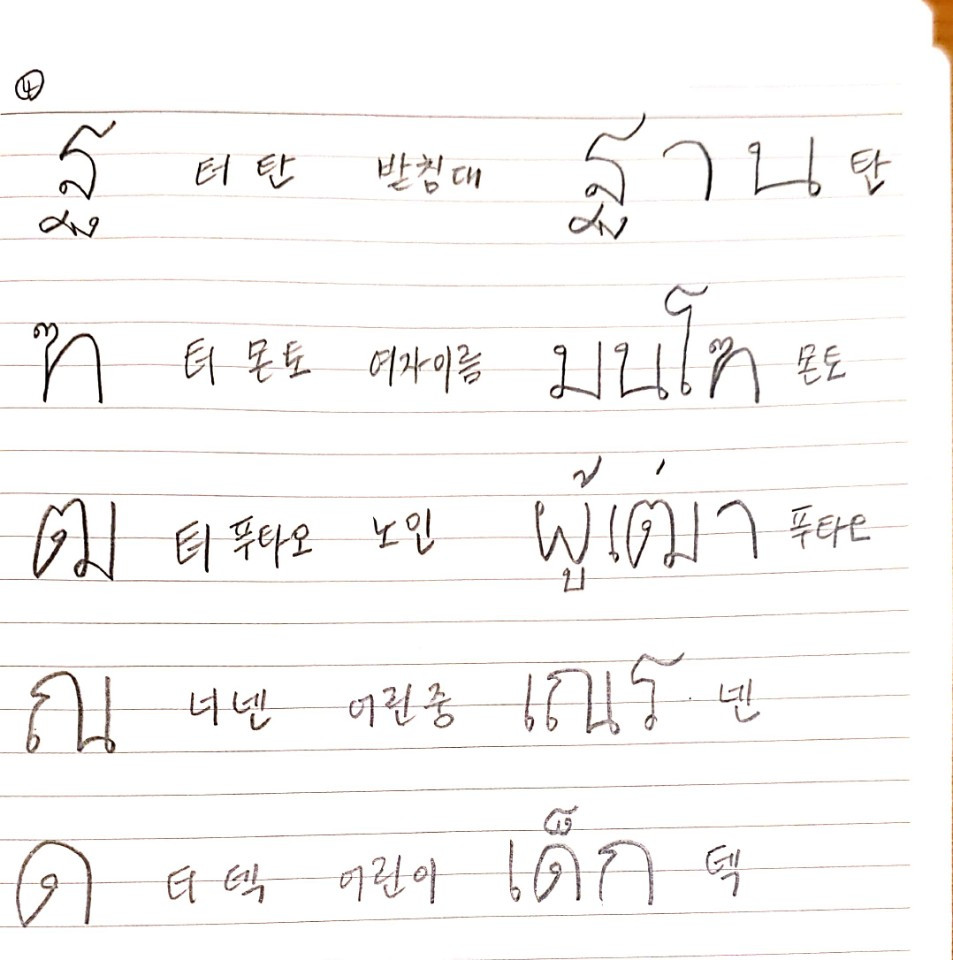 ④
ฐ 터 탄 받침대 ฐาน 탄
ฑ 터 몬토 여자이름 มนโฑ 몬토
ฒ 터 푸타오 노인 ผู้เฒ่า 푸타오
ณ 너 넨 어린중 เณร 넨
ด 더 덱 어린이 เด็ก 덱